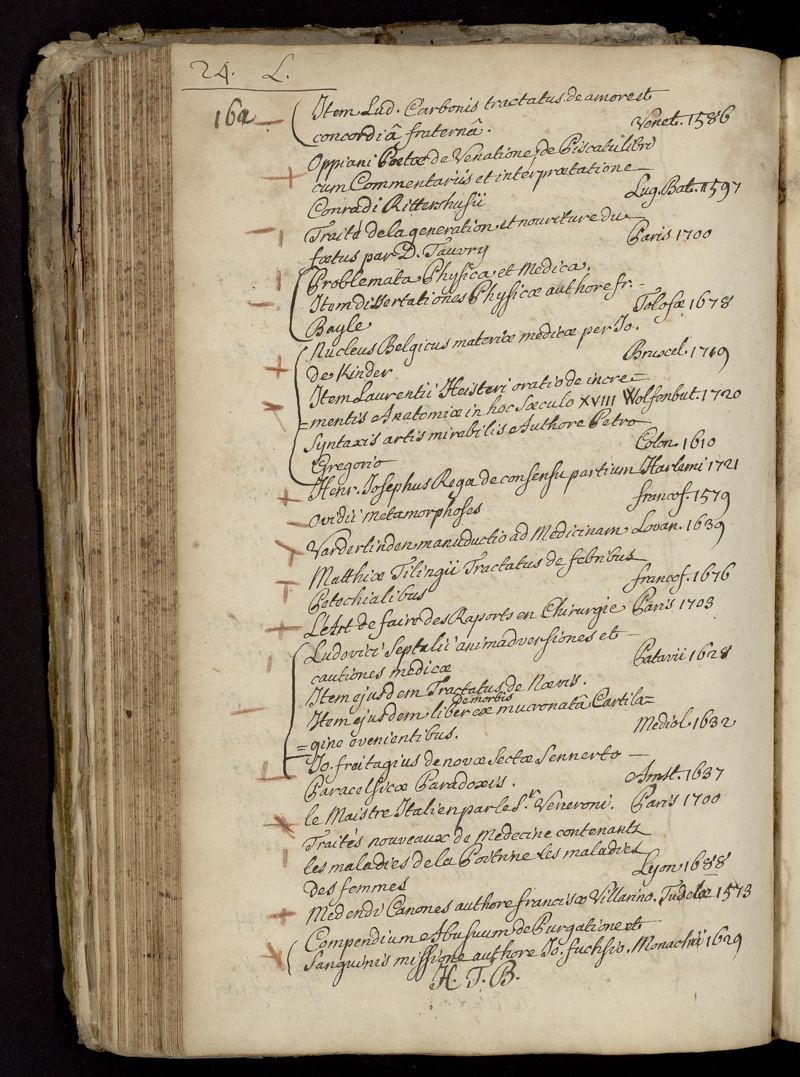 24. L.
162
Item Lud. Carbonis tractatus de amore et
concordiâ fraternâ. Venet. 1586
Oppiani Poetæ de Venatione, de Piscatu libri
cum Commentariis et interprætatione
Conradi Rittershusii Lug. Bat. 1597
Traité de la generation et nouriture du
fœtus par D. Tauvry Paris 1700
Problemata Physica et Medica.
Item dissertationes Physicæ authore fr.
Bayle Tolosæ 1678
Nucleus Belgicus materiæ medicæ per Jo.
de Kinder Bruxcel. 1719
Item Laurentii Heisteri oratio de incre=
=mentis Anatomiæ in hoc Sæculo XVIII Wolfonbut. 1720
Syntaxis artis mirabilis Authore Petro
Gregorio Colon. 1610
Henr. Josephus Rega de consensu partium Harlemi 1721
Ovidii metamorphoses francof. 1579
Varderlinden manuductio ad Medicinam Lovan. 1639
Matthiæ Tilingii Tractatus de febribus
Petechialibus francof. 1676
L'Art de faire des Raports en Chirurgie Paris 1703
Ludovici Septalii animadversiones et
cautiones medicæ Patavii 1628
Item ejusdem Tractatus de Nævis.
de morbis
Item ejusdem liber eæ mucronatâ Cartila=
=gine evenientibus. Mediol. 1632
Jo. freitagius de novæ Sectæ Sennerto
Paracelsicæ Paradoxis. Amst. 1637
le Maistre Italien par le Sr. Veneroni. Paris 1700
Traités nouveaux de Medecine contenants
les maladies de la Poitrine les maladies
des femmes Lyon 1688
Medendi Canones authore francisco Villarino. Tudelæ 1573
Compendium Abusuum de Purgatione et
Sanguinis missione authore Jo. fuchsio. Monachii 1629
H. T. B.